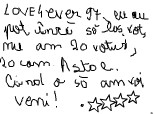 LOVE4ever 97, eu nu
pot încă să las vot,
nu am 20 voturi,
20 cam Astae.
Când o să am voi
veni! .☆☆☆☆